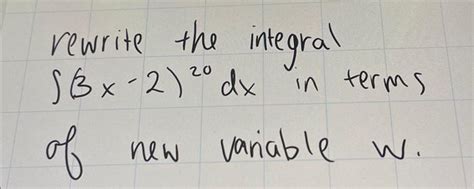 rewrite the integral
∫(3x-2)²⁰ dx in terms
of new variable w.